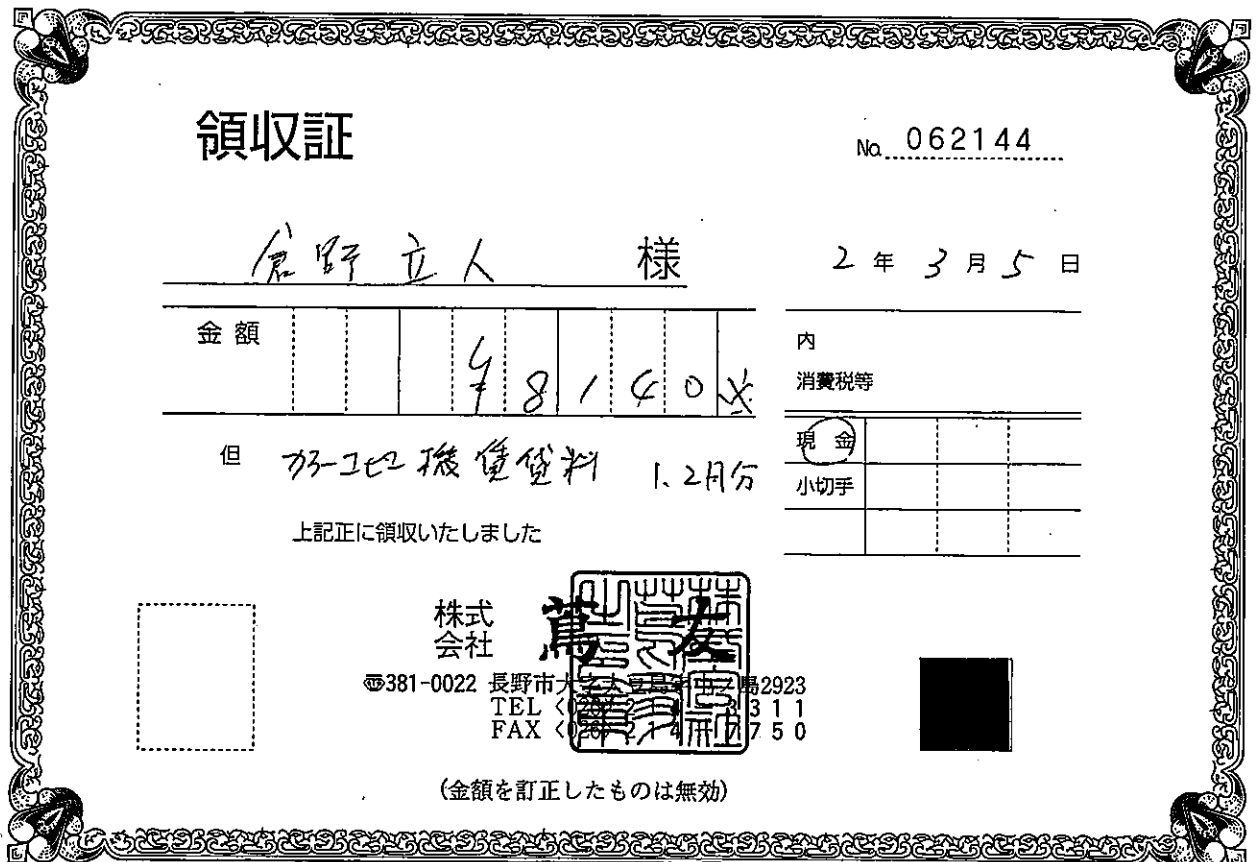 領収証
No. 062144
倉野立人 様
2年3月5日
金額 ¥8140
内
消費税等
現金
小切手
但 カラーコピー機賃貸料 1、2月分
上記正に領収いたしました
株式会社 蔦友
〒381-0022 長野市大字大豆島 2923
TEL
FAX
(金額を訂正したものは無効)